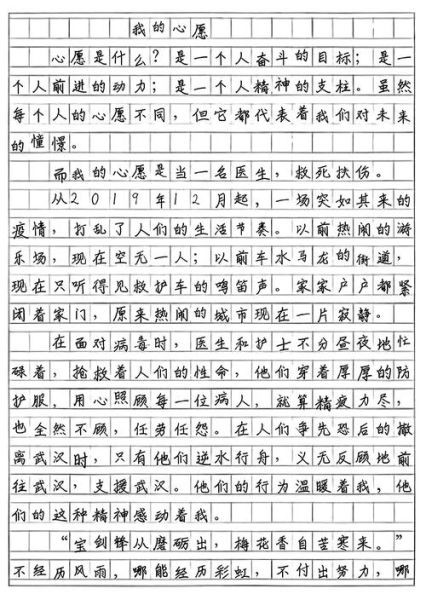 我的心愿
心愿是什么？是一个人奋斗的目标；是一
个人前进的动力；是一个人精神的支柱。虽然
每个人的心愿不同，但它都代表着我们对未来
的憧憬。
而我的心愿是当一名医生，救死扶伤。
从2019年12月起，一场突如其来的
疫情，打乱了人们的生活节奏。以前热闹的游
乐场，现在空无一人；以前车水马龙的街道，
现在只听得见救护车的鸣笛声。家家户户都紧
闭着家门，原来热闹的城市现在一片寂静。
在面对病毒时，医生和护士不分昼夜地忙
碌着，抢救着人们的性命，他们穿着厚厚的防
护服，用心照顾每一位病人，就算精疲力尽，
也全然不顾，任劳任怨。在人们争先恐后的撤
离武汉时，只有他们逆水行舟，义无反顾地前
往武汉，支援武汉。他们的行为温暖着我，他
们的这种精神感动着我。
“宝剑锋从磨砺出，梅花香自苦寒来。”
不经历风雨，哪能经历彩虹，不付出努力，哪